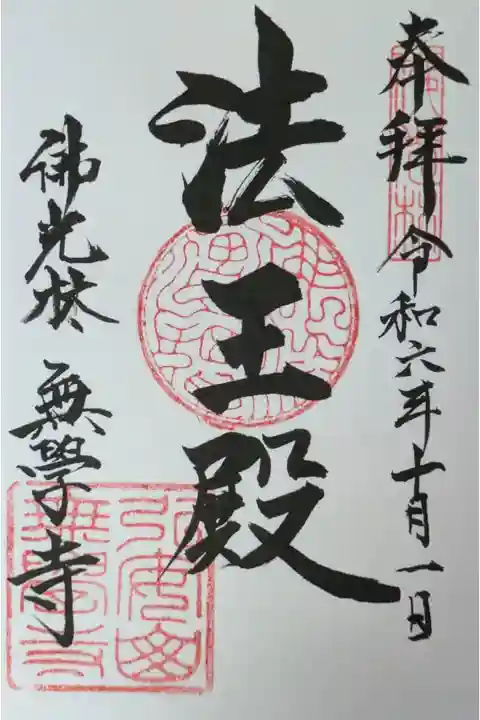 奉拝 令和六年十月一日
法王殿
佛光林 無學寺